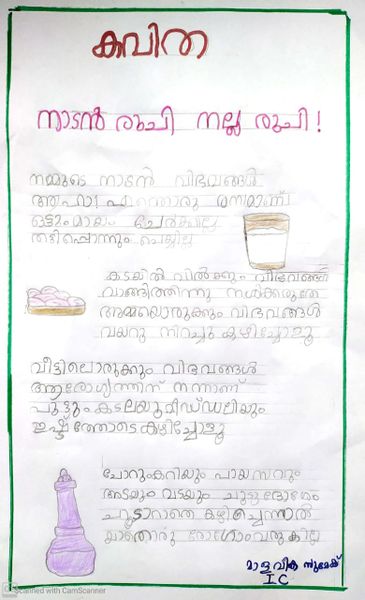 കവിത
നാടൻ രുചി നല്ല രുചി!
നമ്മുടെ നാടൻ വിഭവങ്ങൾ
ആഹാ! എന്തൊരു രസമാണ്
ഒട്ടും മായം ചേർക്കില്ല
തട്ടിപ്പൊന്നും ചെയ്യില്ല
കടയിൽ വിൽക്കും വിഭവങ്ങൾ
വാങ്ങിത്തിന്നു നൾക്കരുതേ
അമ്മയൊരുക്കും വിഭവങ്ങൾ
വയറു നിറച്ചു കഴിച്ചോളൂ
വീട്ടിലൊരുക്കും വിഭവങ്ങൾ
ആരോഗ്യത്തിന് നന്നാണ്
പുട്ടും കടലയുമിഡ്ഡലിയും
ഇഷ്ടത്തോടെ കഴിച്ചോളൂ
ചോറുംകറിയും പായസവും
അടയും വടയും ചൂടുദോശേം
ചൂടാറാതെ കഴിച്ചെന്നാൽ
യാതൊരു രോഗോംവരുകില്ല
മാളവിക സുമേഷ്
I C
Scanned with CamScanner